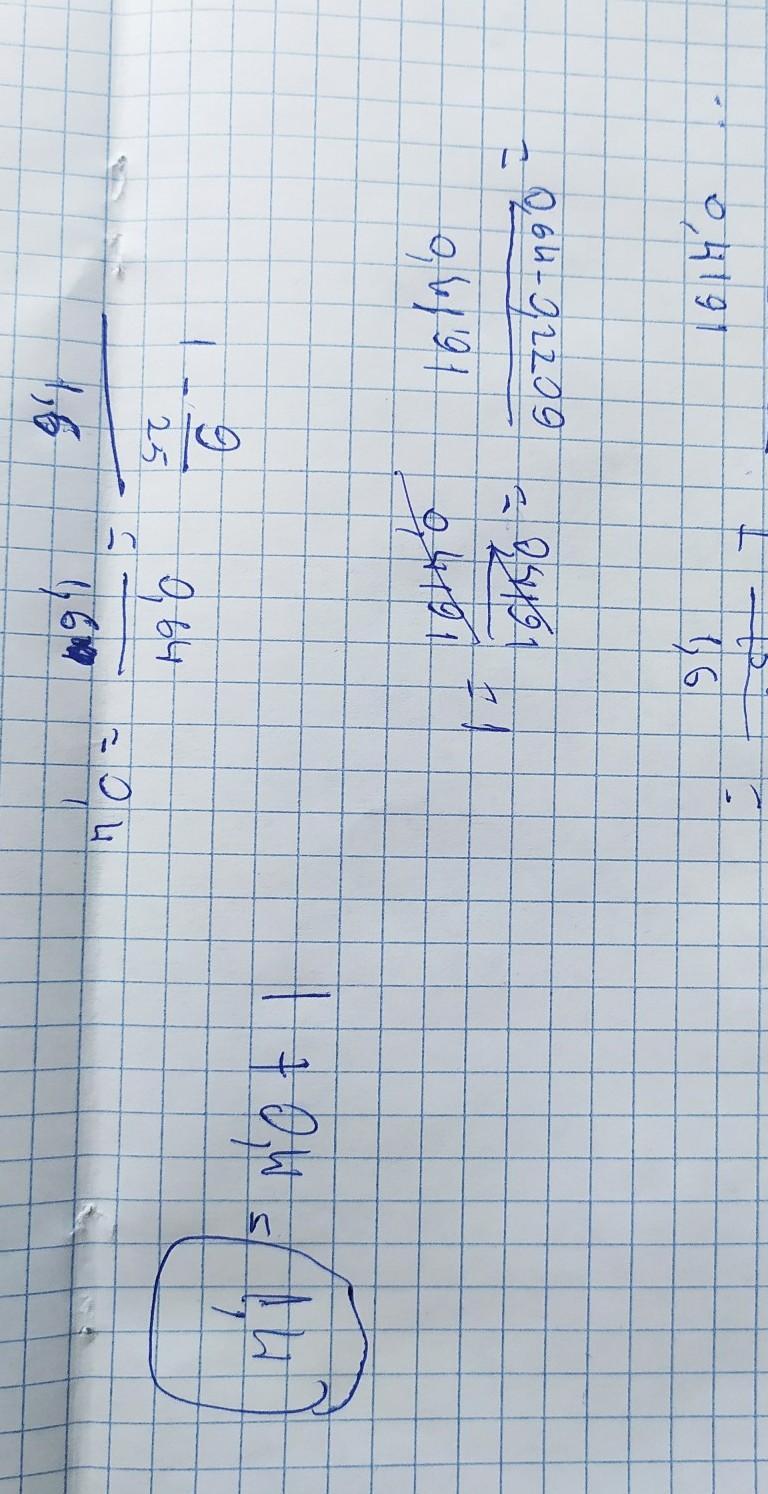 0,4191 1,6 =
= 0,64-0,2209 / 0,4191 = 0,4191 / 0,4191 = 1
1 - 9/25 / 1,6 = 0,64 / 1,6 = 0,4
1 + 0,4 = 1,4